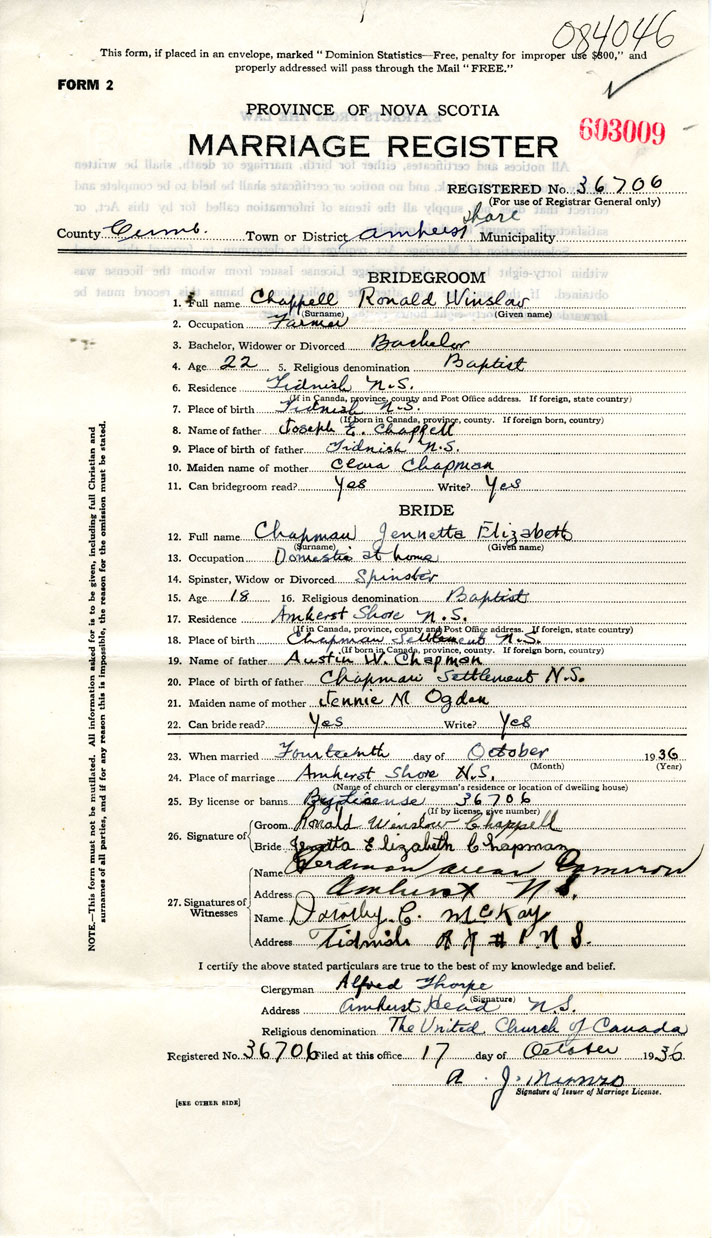 084046
This form, if placed in an envelope, marked "Dominion Statistics—Free, penalty for improper use $300," and
properly addressed will pass through the Mail "FREE."
FORM 2
PROVINCE OF NOVA SCOTIA
603009
MARRIAGE REGISTER
REGISTERED No. 36706
(For use of Registrar General only)
County Cumb. Town or District Amherst Shore Municipality
BRIDEGROOM
1. Full name Chappell Ronald Winslow
(Surname) (Given name)
2. Occupation Farmer
3. Bachelor, Widower or Divorced Bachelor
4. Age 22 5. Religious denomination Baptist
6. Residence Tidnish N.S.
(If in Canada, province, county and Post Office address. If foreign, state country)
7. Place of birth Tidnish N.S.
(If born in Canada, province, county. If foreign born, country)
8. Name of father Joseph E. Chappell
9. Place of birth of father Tidnish N.S.
10. Maiden name of mother Clara Chapman
11. Can bridegroom read? Yes Write? Yes
BRIDE
12. Full name Chapman Jennetta Elizabeth
(Surname) (Given name)
13. Occupation Domestic at home
14. Spinster, Widow or Divorced Spinster
15. Age 18 16. Religious denomination Baptist
17. Residence Amherst Shore N.S.
(If in Canada, province, county and Post Office address. If foreign, state country)
18. Place of birth Chapman Settlement N.S.
(If born in Canada, province, county. If foreign born, country)
19. Name of father Austin W. Chapman
20. Place of birth of father Chapman Settlement N.S.
21. Maiden name of mother Jennie M Ogden
22. Can bride read? Yes Write? Yes
23. When married Fourteenth day of October 1936
(Month) (Year)
24. Place of marriage Amherst Shore N.S.
(Name of church or clergyman's residence or location of dwelling house)
25. By license or banns By License 36706
(If by license, give number)
26. Signature of Groom Ronald Winslow Chappell
Bride Jennetta Elizabeth Chapman
27. Signatures of Witnesses Name Cameron
Address Amherst N.S.
Name Dorothy C. McKay
Address Tidnish R R # 1 N S.
I certify the above stated particulars are true to the best of my knowledge and belief.
Clergyman Alfred Thorpe
(Signature)
Address Amherst Head N.S.
Religious denomination The United Church of Canada
Registered No. 36706 Filed at this office 17 day of October 1936
A. J. Munro
Signature of Issuer of Marriage License.
[SEE OTHER SIDE]
NOTE.—This form must not be mutilated. All information asked for is to be given, including full Christian and
surnames of all parties, and if for any reason this is impossible, the reason for the omission must be stated.